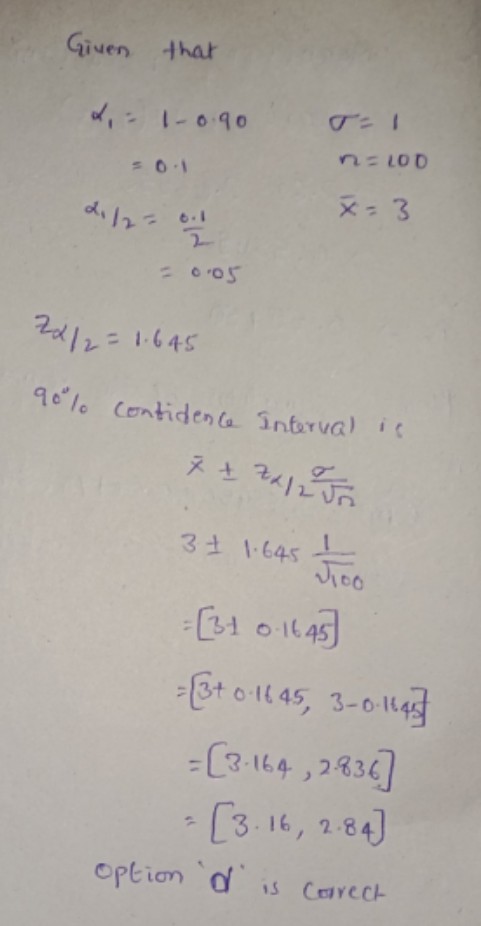 Given that
α₁ = 1-0.90 σ = 1
= 0.1 n = 100
α₁/2 = 0.1/2 x̄ = 3
= 0.05
Zα/2 = 1.645
90% Confidence Interval is
x̄ ± Zα/2 σ/√n
3 ± 1.645 1/√100
= [3 ± 0.1645]
= [3+0.1645, 3-0.1645]
= [3.164, 2.836]
= [3.16, 2.84]
option 'd' is correct